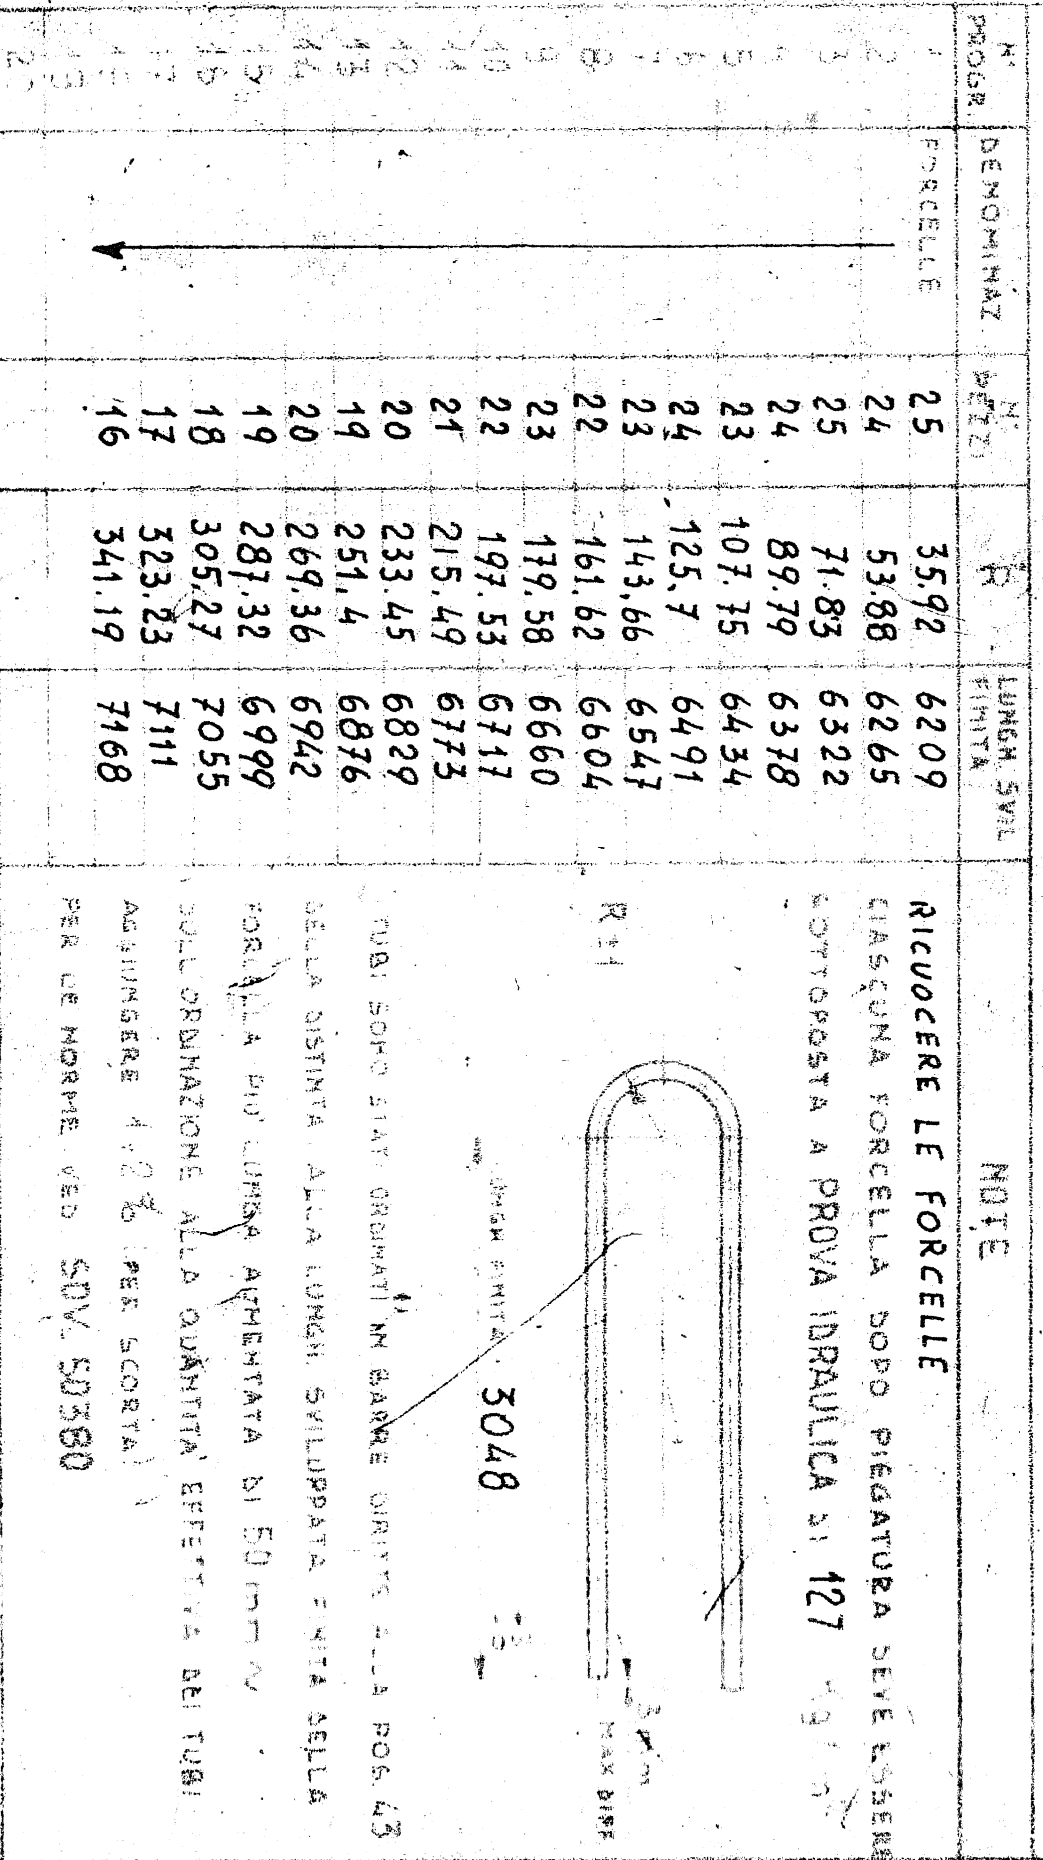 N° PROGR. DENOMINAZ. N° PEZZI R LUNGH. SVIL. FINITA NOTE
FORCELLE 25 35.92 6209
24 53.88 6265
25 71.83 6322
24 89.79 6378
23 107.75 6434
24 125,7 6491
23 143,66 6547
22 161.62 6604
23 179.58 6660
22 197.53 6717
21 215.49 6773
20 233.45 6829
19 251,4 6876
20 269.36 6942
19 287.32 6999
18 305.27 7055
17 323.23 7111
16 341.19 7168
RICUOCERE LE FORCELLE
CIASCUNA FORCELLA DOPO PIEGATURA DEVE ESSERE
SOTTOPOSTA A PROVA IDRAULICA DI 127
R ±1
3 mm
MAX DIFF
LUNGH. FINITA 3048
TUBI SONO STATI ORDINATI IN BARRE DIRITTE ALLA POS. 43
DELLA DISTINTA ALLA LUNGH. SVILUPPATA FINITA DELLA
FORCELLA PIU' LUNGA AUMENTATA DI 50 mm
SULL'ORDINAZIONE ALLA QUANTITA' EFFETTIVA DEI TUBI
AGGIUNGERE 1÷2% (PER SCORTA)
PER LE NORME VED. SDV. 50380